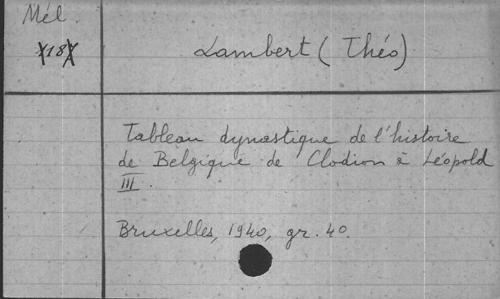 Mél.
Lambert (Théo)
X18X
Tableau dynastique de l'histoire
de Belgique de Clodion à Léopold
III.
Bruxelles, 1940, gr. 4o.